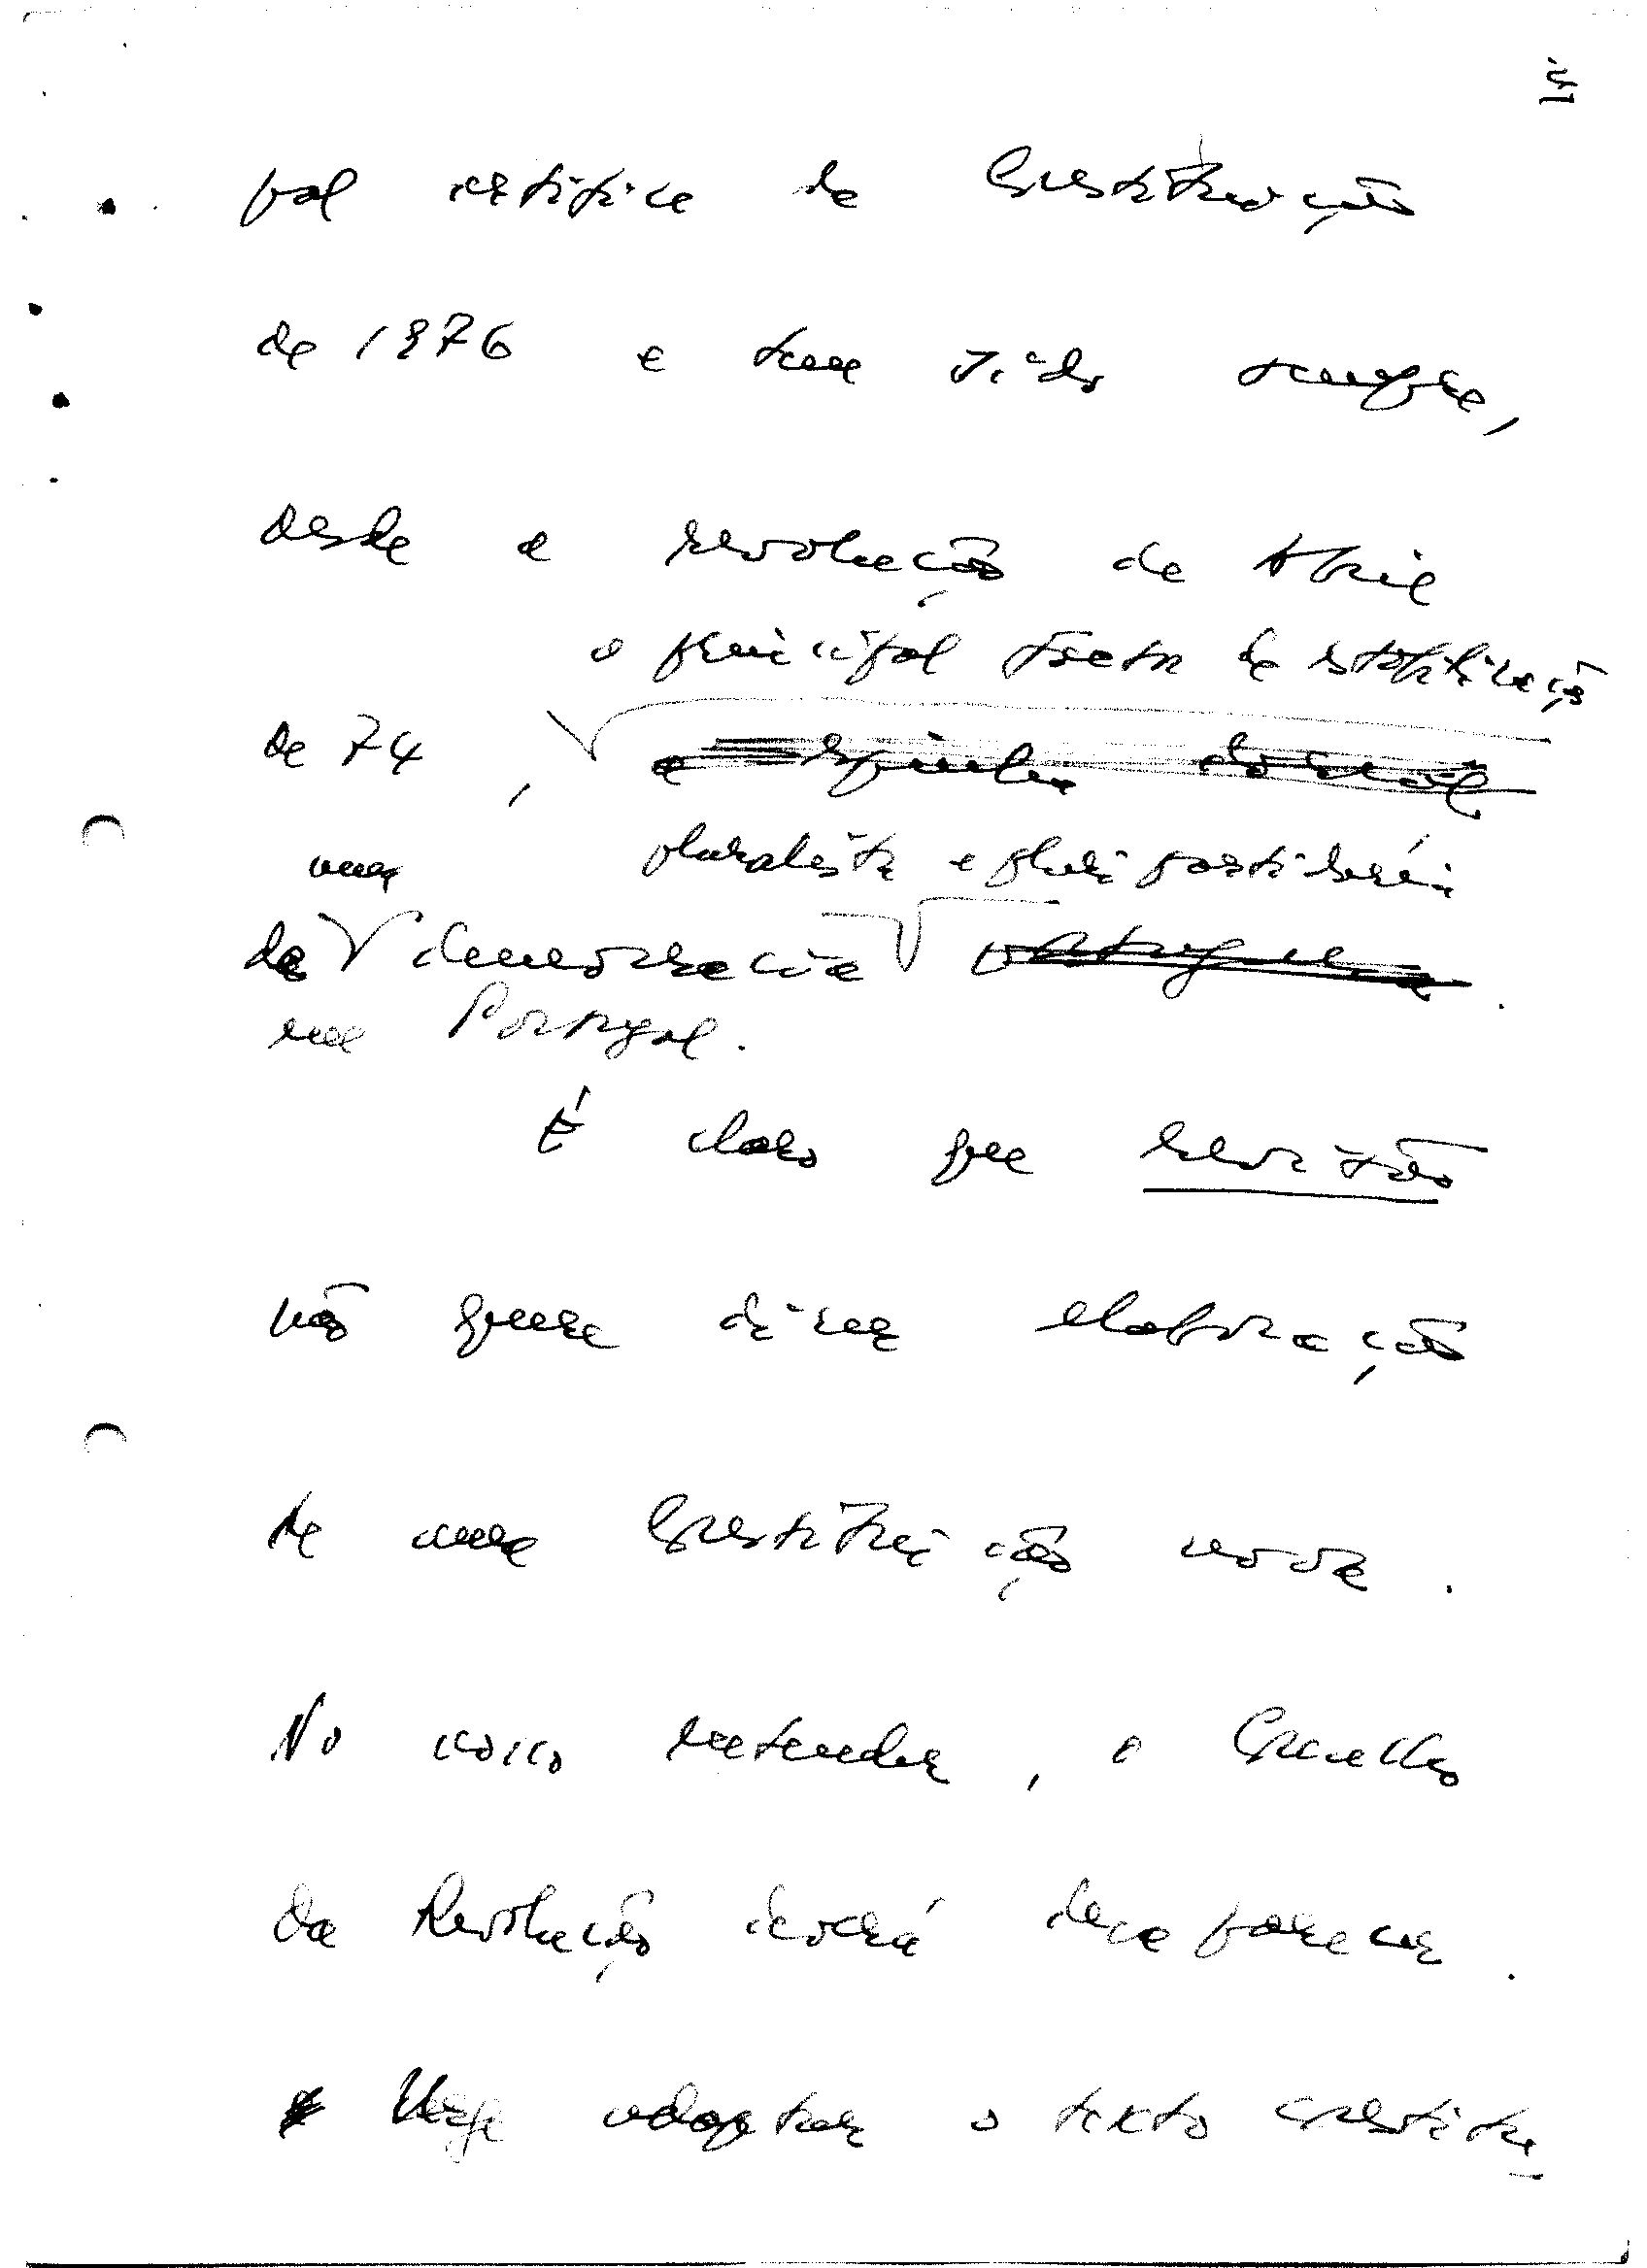 pal artífice da Constituição
de 1976 e tem sido sempre,
desde a revolução de Abril
o principal factor de estabilização
de 74, a espinha dorsal
uma pluralista e pluripartidária
da democracia portuguesa.
em Portugal.
É claro que revisão
não quere dizer elaboração
de uma Constituição nova.
No nosso entender, o Conselho
da Revolução deverá desaparecer.
Urge adaptar o texto constitu